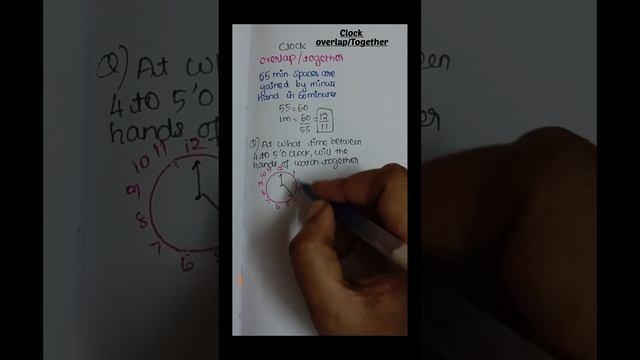 Clock
overlap/Together
Clock
overlap/together
55 min. spaces are
gained by minute
hand in 60 minutes
55 = 60
1m = 60/55 = 12/11
Q) At what time between
4 to 5'O clock, will the
hands of watch together
10 11 12 1
9
8
7 6